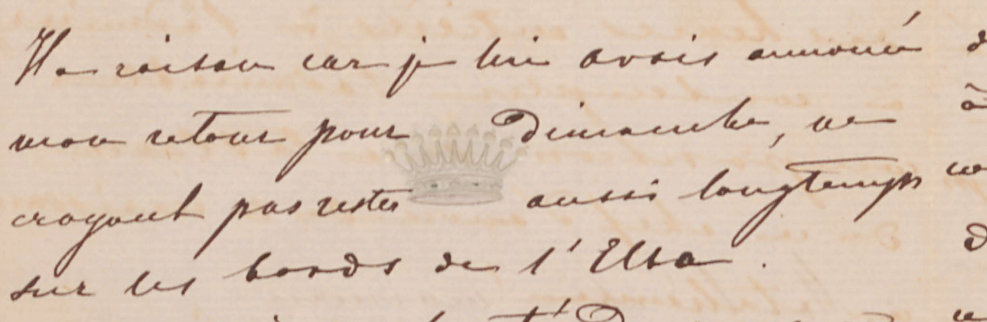 Il a raison car je lui avais annoncé
mon retour pour dimanche, ne
croyant pas rester aussi longtemps
sur les bords de l'Elbe.